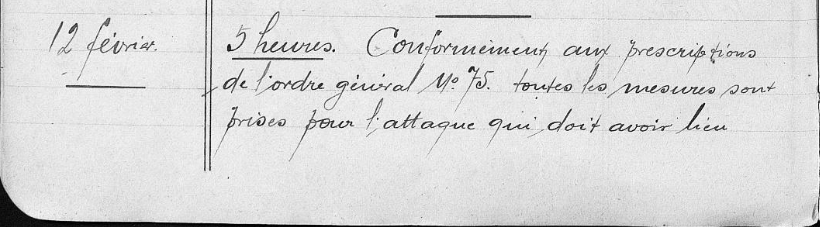 12 février. 5 heures. Conformément aux prescriptions
de l'ordre général No. 75. toutes les mesures sont
prises pour l'attaque qui doit avoir lieu